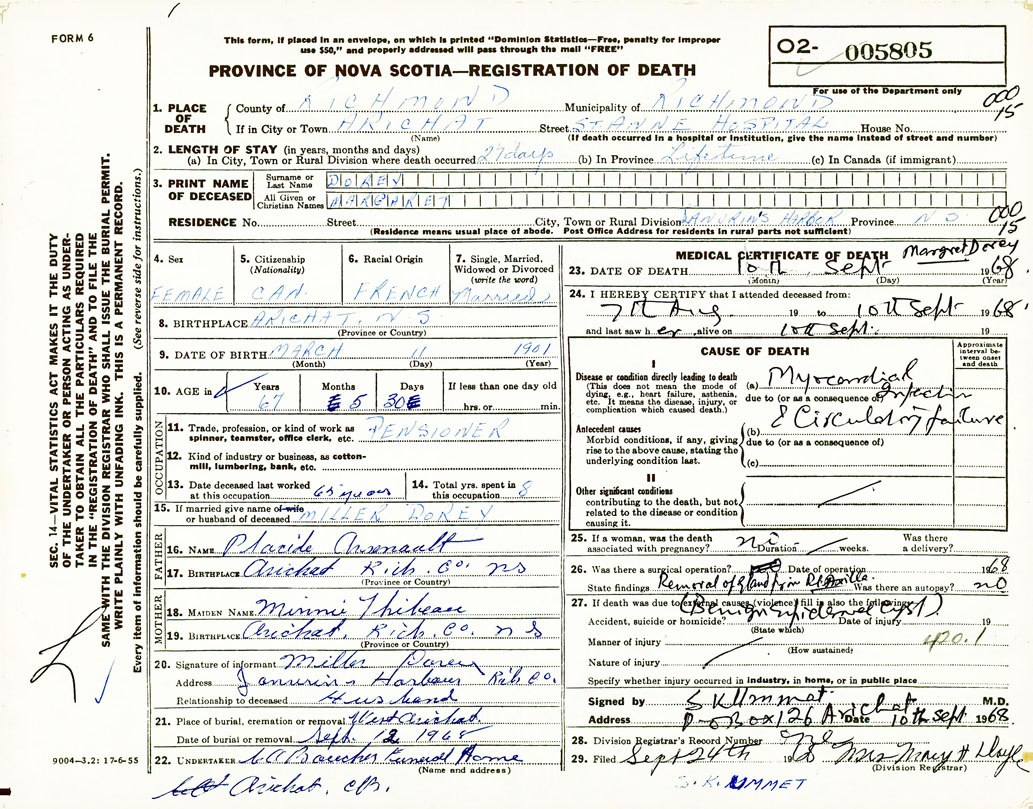 FORM 6
This form, if placed in an envelope, on which is printed "Dominion Statistics—Free, penalty for improper
use $50," and properly addressed will pass through the mail "FREE"
PROVINCE OF NOVA SCOTIA—REGISTRATION OF DEATH
O2- 005805
For use of the Department only
000
15
1. PLACE OF DEATH
County of RICHMOND Municipality of RICHMOND
If in City or Town ARICHAT Street ST ANNE HOSPITAL House No.
(Name) (If death occurred in a hospital or institution, give the name instead of street and number)
2. LENGTH OF STAY (in years, months and days)
(a) In City, Town or Rural Division where death occurred 27 days (b) In Province Lifetime (c) In Canada (if immigrant)
3. PRINT NAME OF DECEASED
Surname or Last Name DOREY
All Given or Christian Names MARGARET
RESIDENCE No. Street City, Town or Rural Division JANVRIN'S HARBOR Province NS
000
15
(Residence means usual place of abode. Post Office Address for residents in rural parts not sufficient)
4. Sex FEMALE
5. Citizenship (Nationality) CAN.
6. Racial Origin FRENCH
7. Single, Married, Widowed or Divorced (write the word) Married
8. BIRTHPLACE ARICHAT, N S
(Province or Country)
9. DATE OF BIRTH MARCH 11 1901
(Month) (Day) (Year)
10. AGE in Years 67 Months 5 Days 30 If less than one day old
hrs. or min.
OCCUPATION
11. Trade, profession, or kind of work as spinner, teamster, office clerk, etc. PENSIONER
12. Kind of industry or business, as cotton-mill, lumbering, bank, etc.
13. Date deceased last worked at this occupation 65 years
14. Total yrs. spent in this occupation 8
15. If married give name of wife or husband of deceased MILLER DOREY
FATHER
16. NAME Placide Arsenault
17. BIRTHPLACE Arichat Rich. Co. NS
(Province or Country)
MOTHER
18. MAIDEN NAME Minnie Thibeau
19. BIRTHPLACE Arichat, Rich. Co. N S
(Province or Country)
20. Signature of informant Miller Dorey
Address Janvrins Harbour Rich Co.
Relationship to deceased Husband
21. Place of burial, cremation or removal West Arichat
Date of burial or removal Sept. 12 1968
22. UNDERTAKER Boucher Funeral Home
(Name and address)
Arichat, C.B.
MEDICAL CERTIFICATE OF DEATH Margret Dorey
23. DATE OF DEATH 10th Sept 1968
(Month) (Day) (Year)
24. I HEREBY CERTIFY that I attended deceased from:
7th Aug 19 to 10th Sept 1968
and last saw her alive on 10th Sept. 19
CAUSE OF DEATH
Approximate interval between onset and death
I
Disease or condition directly leading to death
(This does not mean the mode of dying, e.g., heart failure, asthenia, etc. It means the disease, injury, or complication which caused death.)
(a) Myocardial
due to (or as a consequence of)
Antecedent causes
Morbid conditions, if any, giving rise to the above cause, stating the underlying condition last.
(b) Circulatory failure
due to (or as a consequence of)
(c)
II
Other significant conditions
contributing to the death, but not related to the disease or condition causing it.
25. If a woman, was the death associated with pregnancy? no Duration weeks. Was there a delivery?
26. Was there a surgical operation? Date of operation 1968
State findings Removal of gland from Rt axilla. Was there an autopsy? no
27. If death was due to external causes (violence) fill in also the following:
(Benign epidermal cyst)
Accident, suicide or homicide? Date of injury 19
(State which)
Manner of injury 420.1
(How sustained)
Nature of injury
Specify whether injury occurred in industry, in home, or in public place
Signed by S K Ummat M.D.
Address P.O Box 126 Arichat Date 10th Sept 1968
28. Division Registrar's Record Number
29. Filed Sept 24th 1968 Mrs Mary H
(Division Registrar)
S.K. UMMET
9004—3.2: 17-6-55
SEC. 14—VITAL STATISTICS ACT MAKES IT THE DUTY
OF THE UNDERTAKER OR PERSON ACTING AS UNDER-
TAKER TO OBTAIN ALL THE PARTICULARS REQUIRED
IN THE "REGISTRATION OF DEATH" AND TO FILE THE
SAME WITH THE DIVISION REGISTRAR WHO SHALL ISSUE THE BURIAL PERMIT.
WRITE PLAINLY WITH UNFADING INK. THIS IS A PERMANENT RECORD.
Every item of information should be carefully supplied. (See reverse side for instructions.)